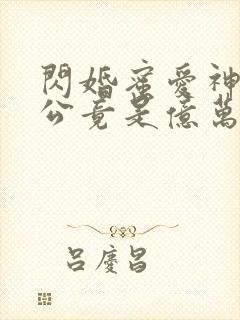 閃婚蜜愛神
公竟是億萬
呂慶昌